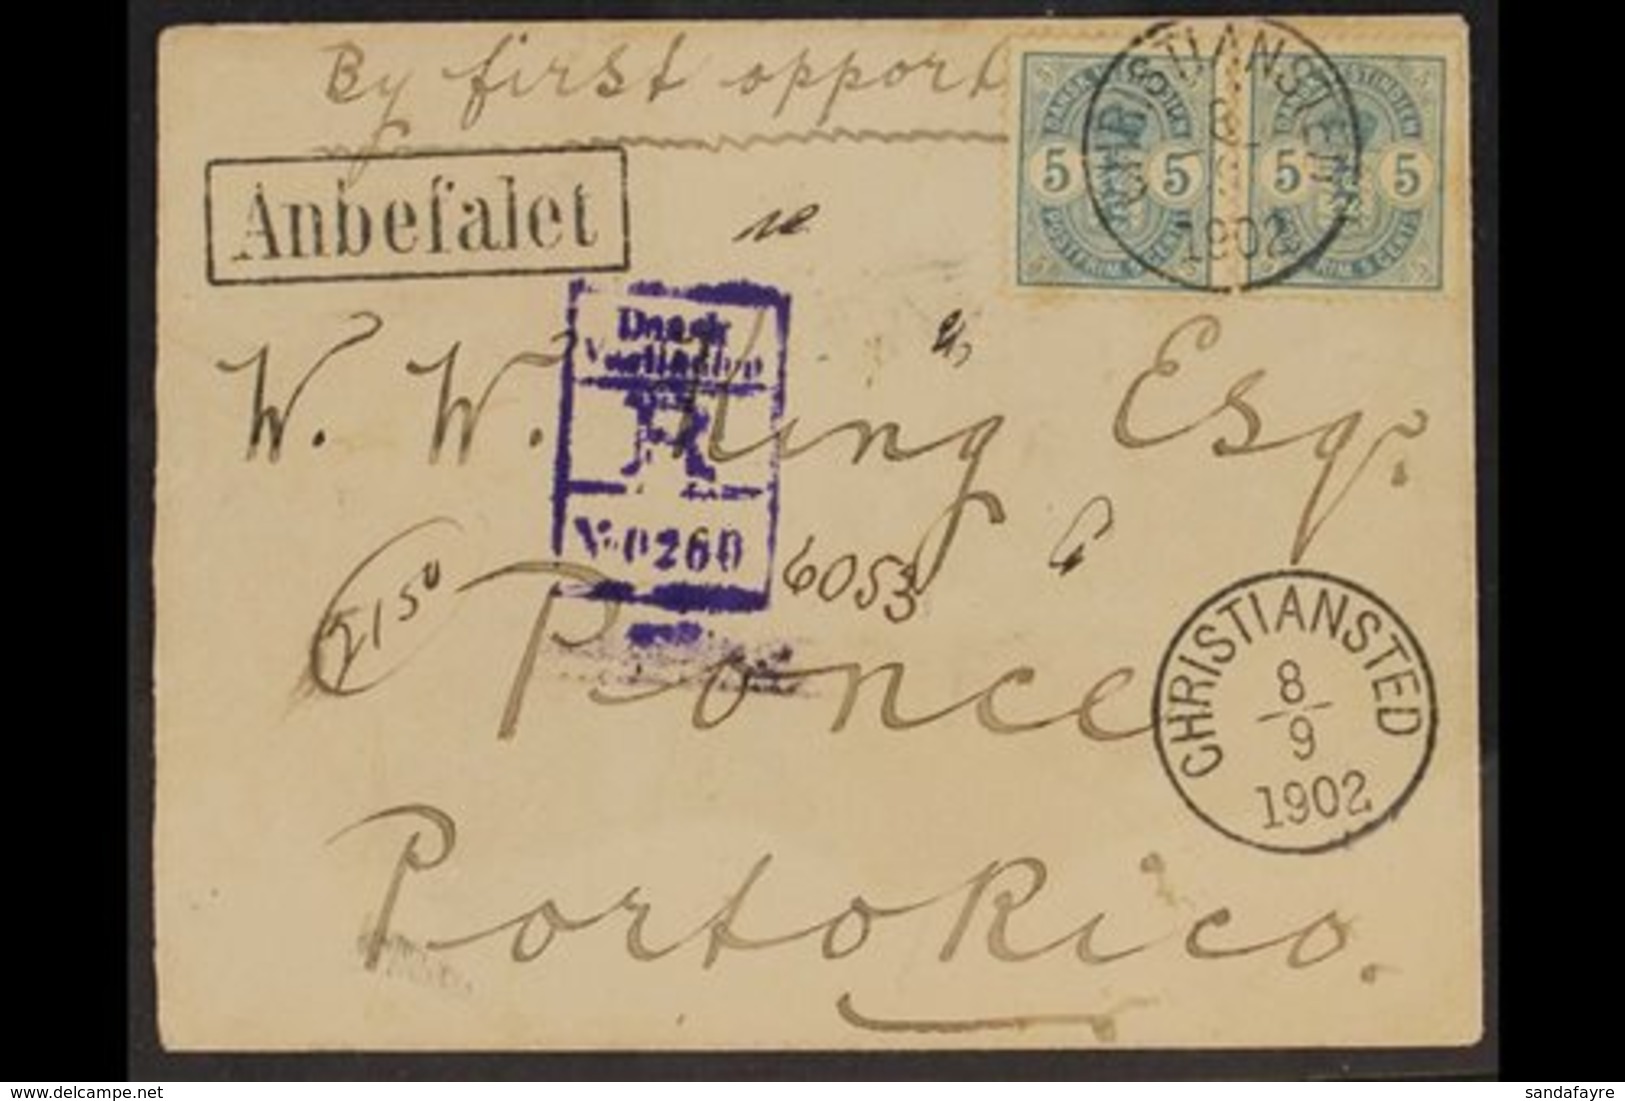 By first opport
Anbefalet
5 5
5 5
CHRISTIANSTED
1902
W. W. King Esq.
Dansk
Vestindien
R
No 0260
6053
2150
Ponce
CHRISTIANSTED
8/9
1902
Porto Rico.
www.delcampe.net
sandafayre